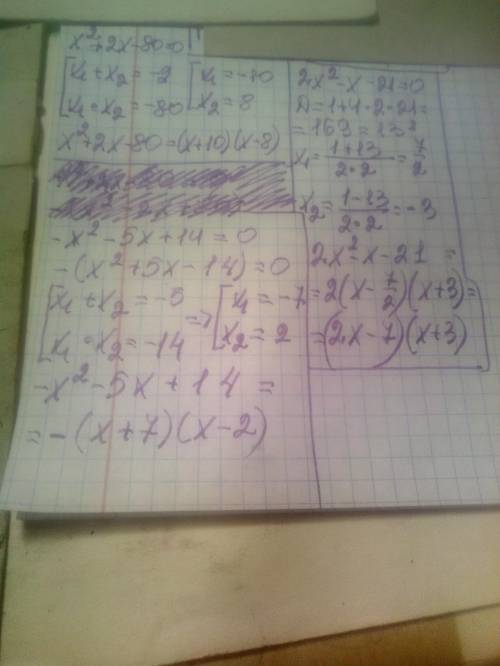 x²+2x-80=0
[x₁+x₂=-2 [x₁=-10
x₁·x₂=-80 x₂=8
x²+2x-80=(x+10)(x-8)
-x²-5x+14=0
-(x²+5x-14)=0
[x₁+x₂=-5 => [x₁=-7
x₁·x₂=-14 x₂=2
-x²-5x+14=
=-(x+7)(x-2)
2x²-x-21=0
D=1+4·2·21=
=169=13²
x₁=(1+13)/(2·2)=7/2
x₂=(1-13)/(2·2)=-3
2x²-x-21=
=2(x-7/2)(x+3)=
=(2x-7)(x+3)